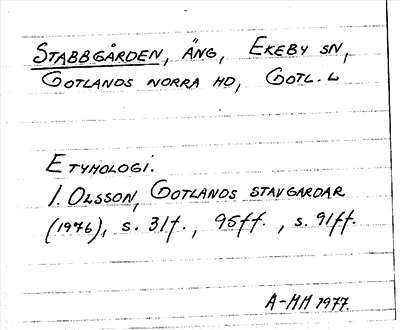 STABBGÅRDEN, ÄNG, EKEBY SN,
GOTLANDS NORRA HD, GOTL. L
ETYMOLOGI.
I. OLSSON, GOTLANDS STAVGARDAR
(1976), s. 31f., 95ff., s. 91ff.
A-MH 1977.